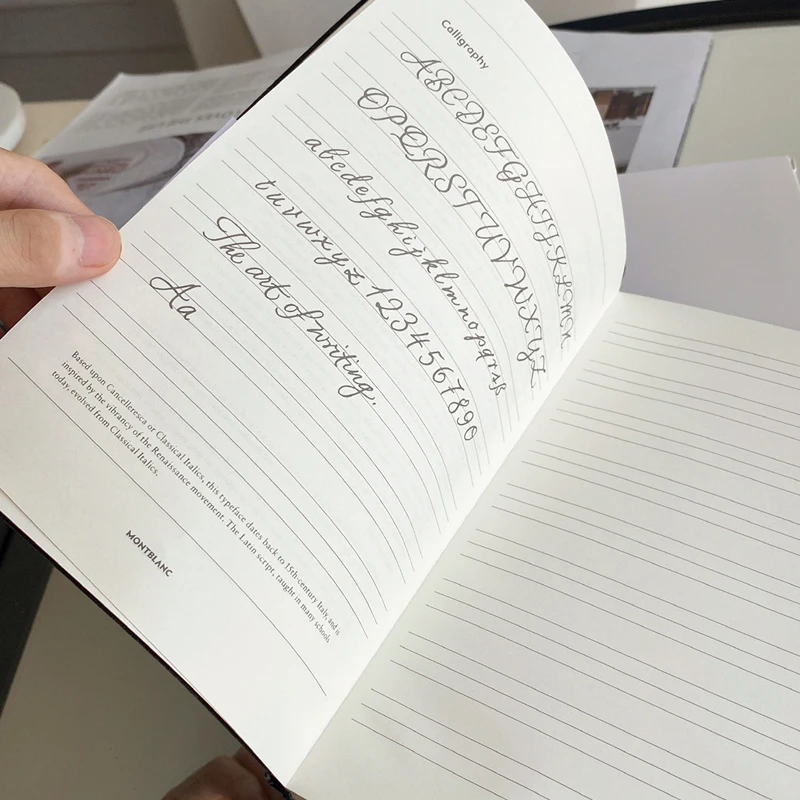 Calligraphy
ABCDEFGHIJKLMN
OPQRSTUVWXYZ
abcdefghijklmnopqrsß
tuvwxyz 1234567890
The art of writing.
Aa
Based upon Cancelleresca or Classical Italics, this typeface dates back to 15th-century Italy, and is
inspired by the vibrancy of the Renaissance movement. The Latin script, taught in many schools
today, evolved from Classical Italics.
MONTBLANC